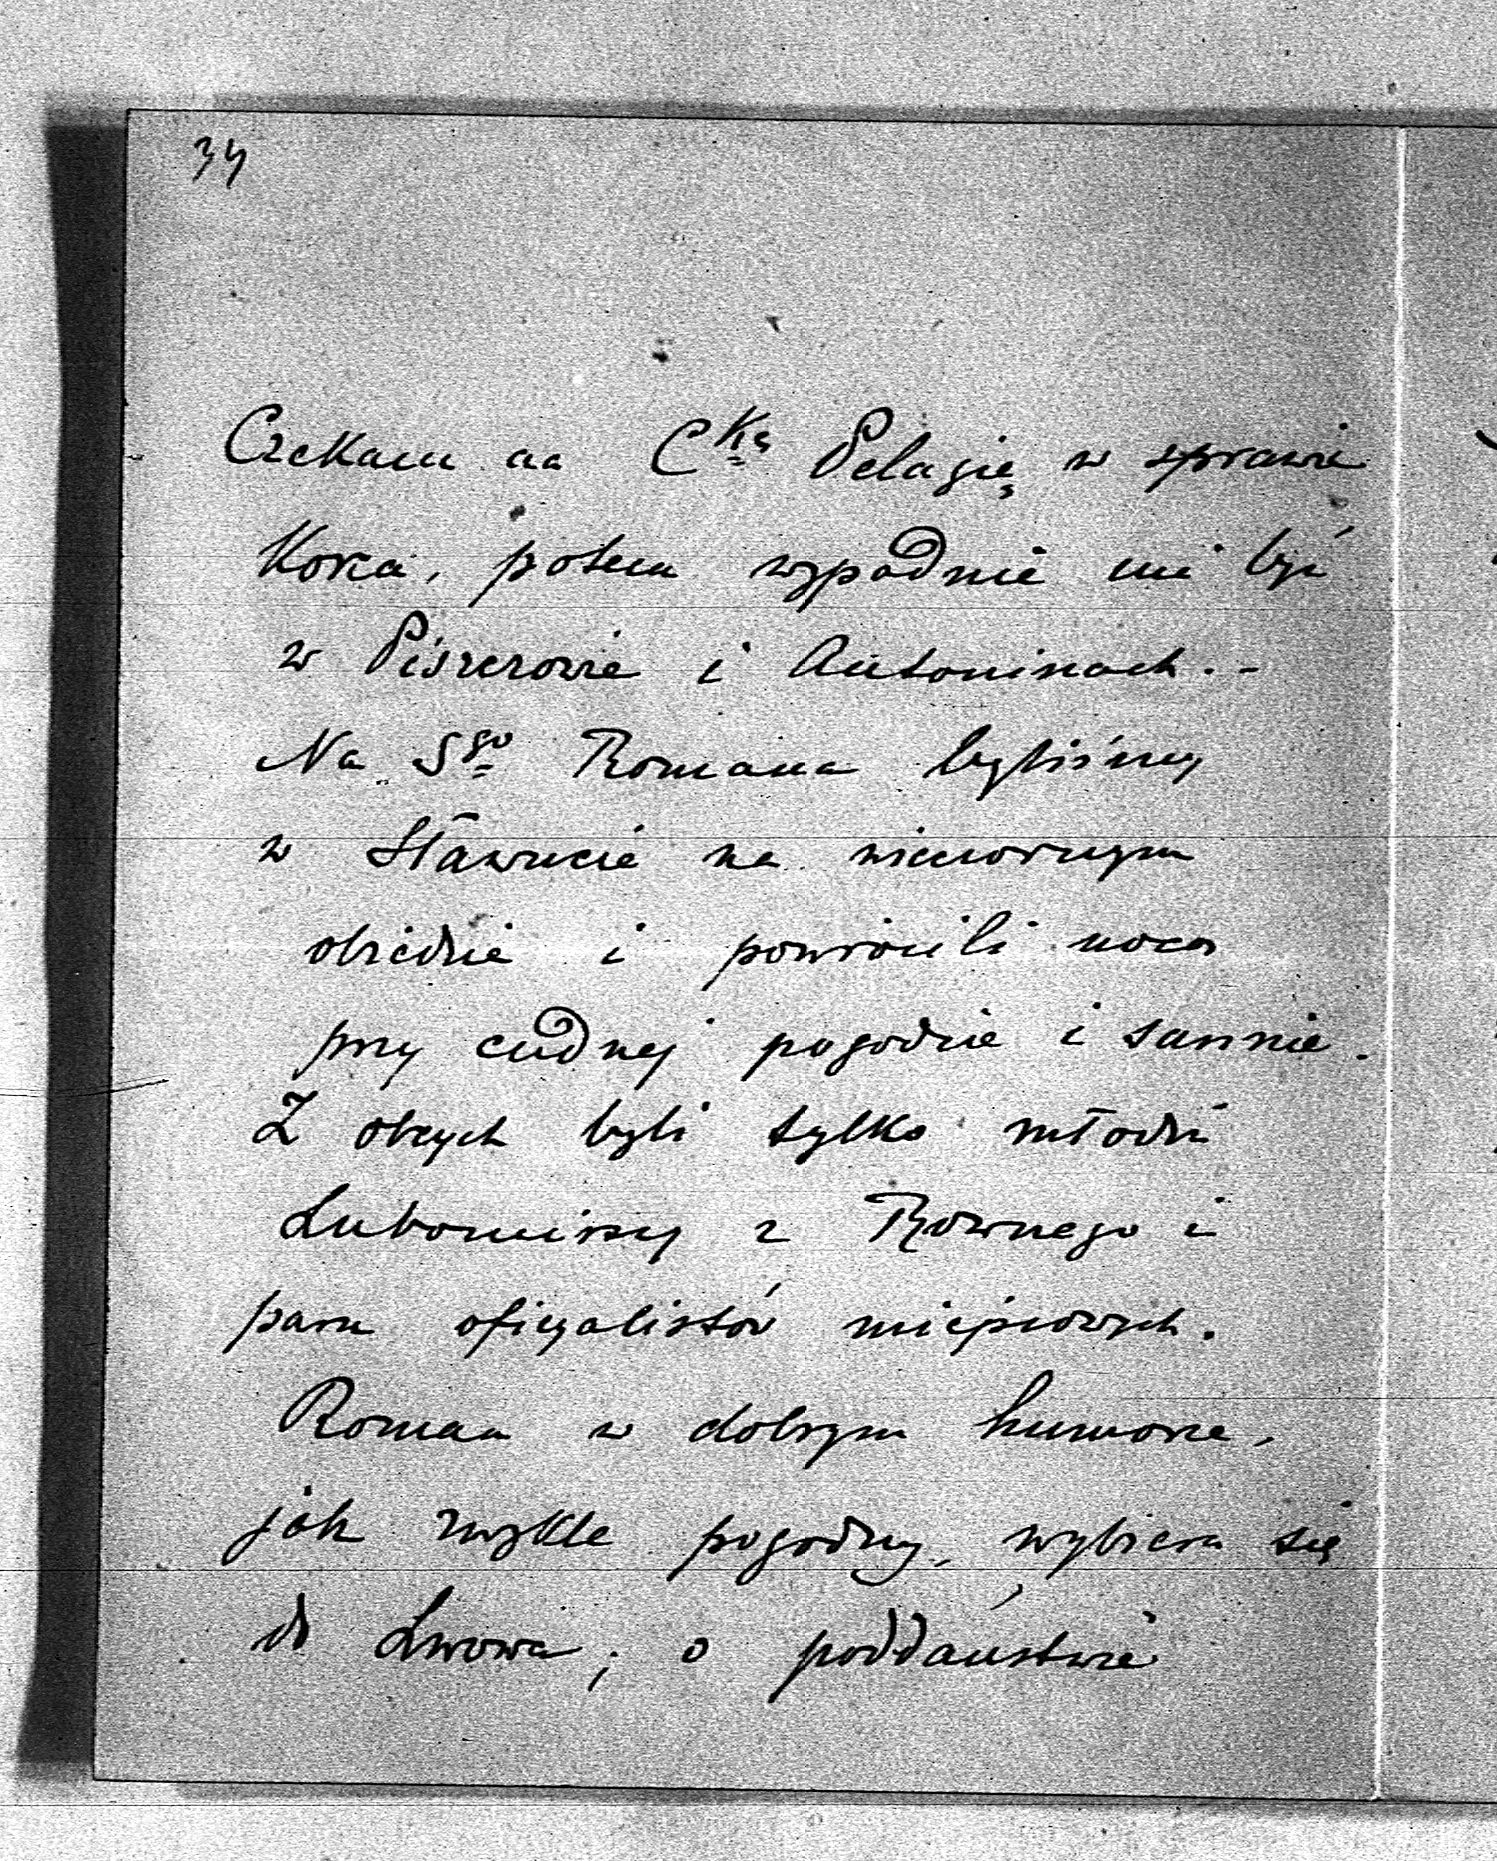 34
Czekam na Cką Pelagię w sprawie
Korca, potem wypadnie mi być
w Piszczowie i Antoninach. -
Na Sgo Romana byliśmy
w Sławucie na wieczornym
obiedzie i powrócili nocą
przy cudnej pogodzie i sannie.
Z obcych byli tylko młodzi
Lubomirscy z Rownego i
paru oficyalistów miejscowych.
Roman w dobrym humorze,
jak zwykle pogodny, wybiera się
do Lwowa; o poddaństwie